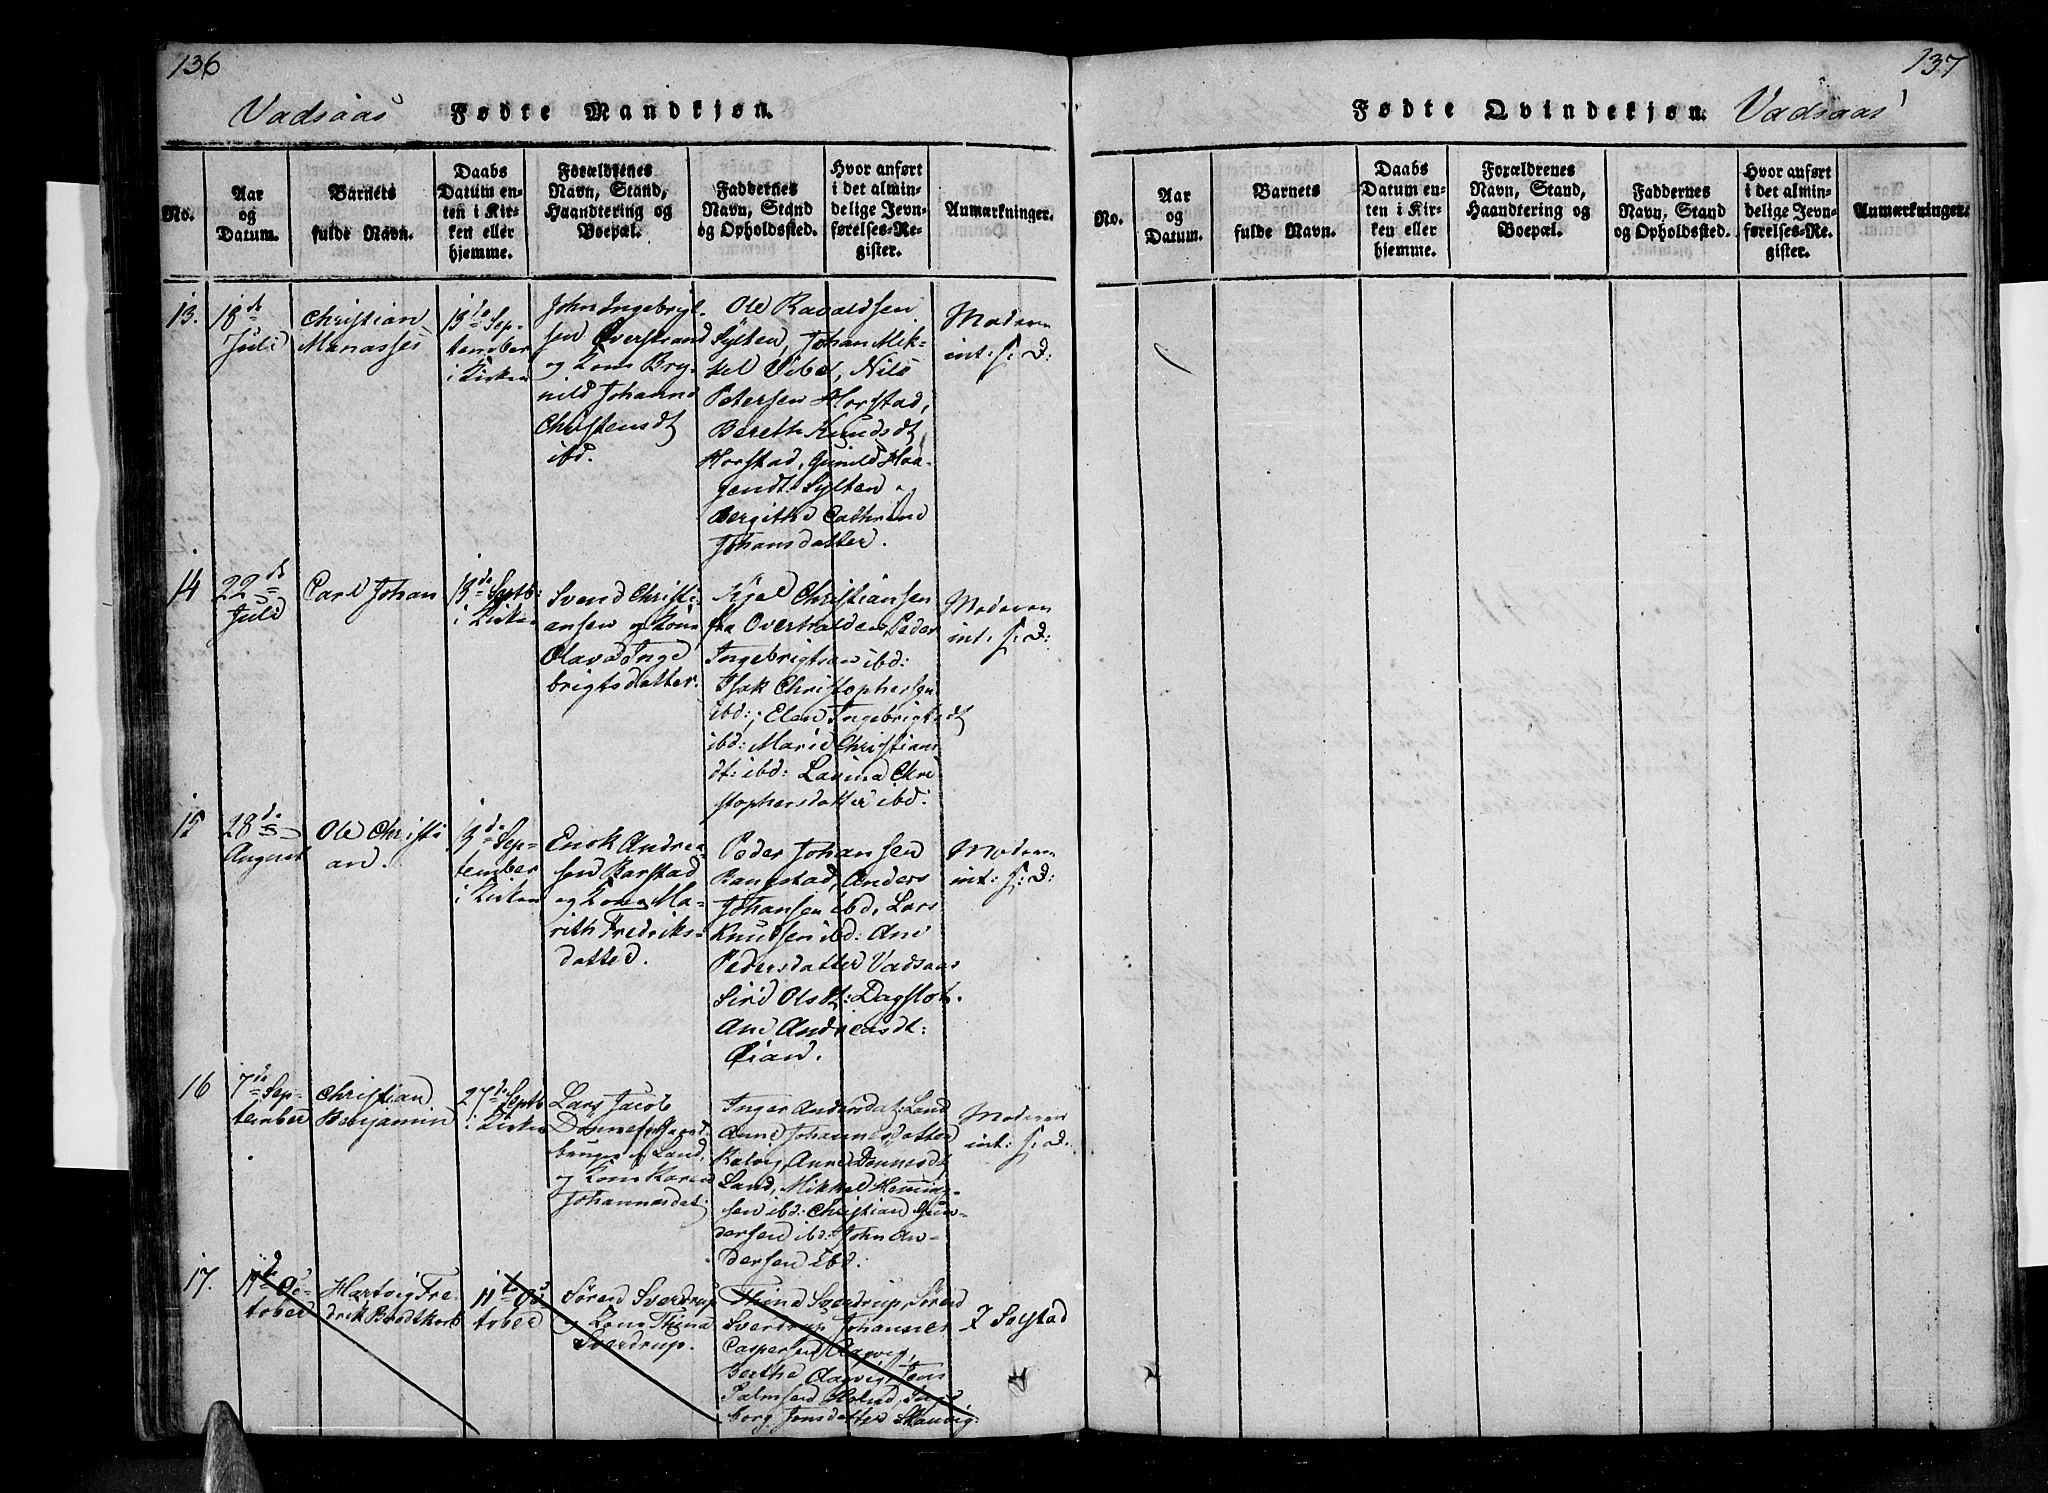 136
Vadsöas Fødte Mandkjøn.
No.
Aar
og
Datum.
Barnets
fulde Navn.
Daabs
Datum en-
ten i Kir-
ken eller
hjemme.
Forældrenes
Navn, Stand,
Haandtering og
Boepæl.
Faddernes
Navn, Stand
og Opholdssted.
Hvor anført
i det almin-
delige Jevn-
førelses-Re-
gister.
Anmærkninger.
13.
18de
Juli
Christian
Manasses
13de Sep-
tember
i Kirken
John Ingebrigt-
sen Overstrand
og Kone Bry-
nild Johanne
Christensdt
ibd.
Ole Ravaldsen
Sylten, Johan Mik-
kel Vibe, Nils
Petersen Horstad,
Bereth Knudsdt
Horstad, Gunild Haa-
gendt. Sylten
Bergithe Cathrine
Johansdatter.
Moderen
int: S: D:
14
22de
Juli
Carl Johan
13de Septb:
i Kirken
Svend Christi-
ansen og Kone
Olava Inge
brigtsdatter.
Kjel Christiansen
fra Overhalden, Peder
Ingebrigtsen ibd:
Isak Christophersen
ibd:, Elen Ingebrigtsdt
ibd: Marie Christians
dt: ibd: Lavina Chri
stophersdatter ibd.
Moderen
int: S: D:
15
28de
August
Ole Christi
an.
13de Sep-
tember
i Kirken
Enok Andrea-
sen Barstad
og Kone Ma-
rith Fredriks-
datter.
Peder Johansen
Bangstad, Anders
Johansen ibd, Lars
Knudsen ibd: Ane
Pedersdatter Vadsaas
Siri Olsdt: Dagslot.
Ane Andreasdt:
Øian.
Moderen
int: S: D:
16
7de Sep-
tember
Christian
Benjamin
27de Septb
i Kirken
Lars Jacob
Dønnesen Gaard-
bruger Land,
og Kone Karen
Johannesdat.
Inger Andersdat: Land
Anne Johannesdatter
Kalvig, Anne Dønnesdt
Land, Mikkel Heming-
sen ibd: Christian Gun-
dersen ibd: John An-
dersen ibd:
Moderen
int: S: D:
17.
11te Oc-
tober
Hartvig Fre-
drik Brodtkorb
11te Oc-
tober
Søren Sverdrup
og Kone Thina
Sverdrup.
Thina Sverdrup, Søren
Sverdrup Johannes
Caspersen Aagvig,
Berthe Aagvig, Jens
Palmsen
borg Jonsdatter Skarvig.
Solstad
137
Fødte Qvindekjøn. Vadsaas
No.
Aar
og
Datum.
Barnets
fulde Navn.
Daabs
Datum en-
ten i Kir-
ken eller
hjemme.
Forældrenes
Navn, Stand,
Haandtering og
Boepæl.
Faddernes
Navn, Stand
og Opholdssted.
Hvor anført
i det almin-
delige Jevn-
førelses-Re-
gister.
Anmærkninger.